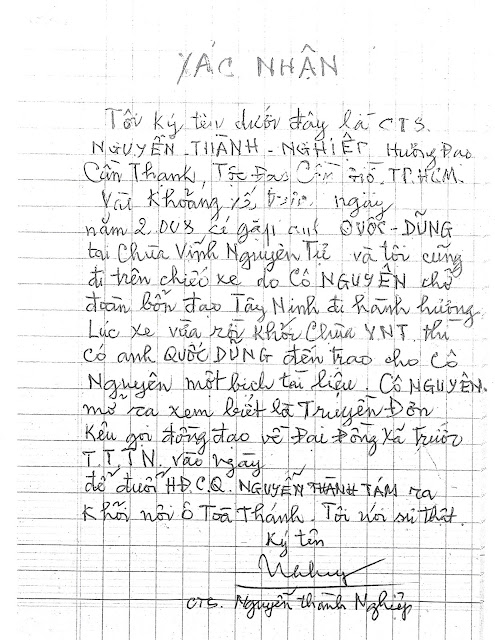 XÁC NHẬN
Tôi Ký tên dưới đây là CTS.
NGUYỄN - THÀNH - NGHIỆP Hương Đạo
Cần Thạnh, Tộc Đạo Cần Giờ, TP.HCM.
Vào Khoảng ngày
năm 2.008 có gặp anh QUỐC - DŨNG
tại Chùa Vĩnh Nguyên Tự và tôi cũng
đi trên chiếc xe do Cô NGUYÊN chở
đoàn bổn đạo Tây Ninh đi hành hương
Lúc xe vừa ra khỏi Chùa V.N.T. thì
có anh QUỐC DŨNG đến trao cho cô
Nguyên một bịch tài liệu. Cô NGUYÊN.
mở ra xem biết là Truyền Đơn
Kêu gọi đồng đạo về Đại Đồng Xã Trước
T.T.T.N. vào ngày
để đuổi H.Đ.C.Q. NGUYỄN THÀNH TÁM ra
khỏi nội Ô Toà Thánh. Tôi nói sự thật.
Ký tên
CTS. Nguyễn thành Nghiệp